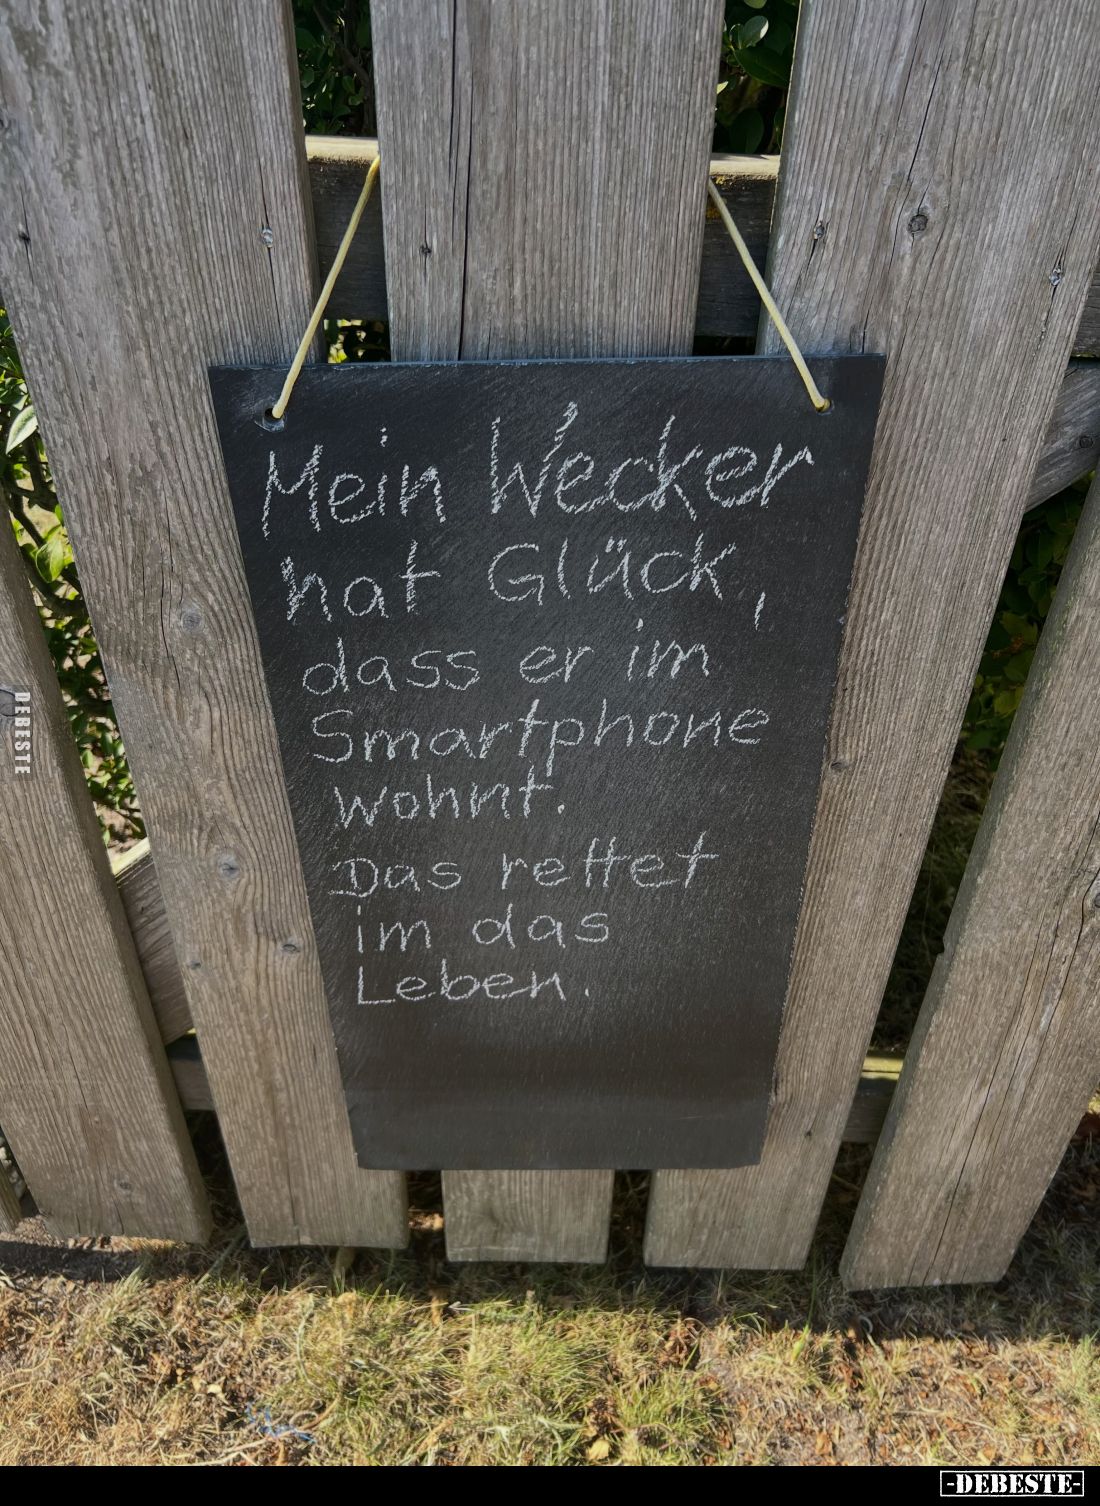 Mein Wecker
hat Glück,
dass er im
Smartphone
wohnt.
Das rettet
im das
Leben.
DEBESTE
-DEBESTE-